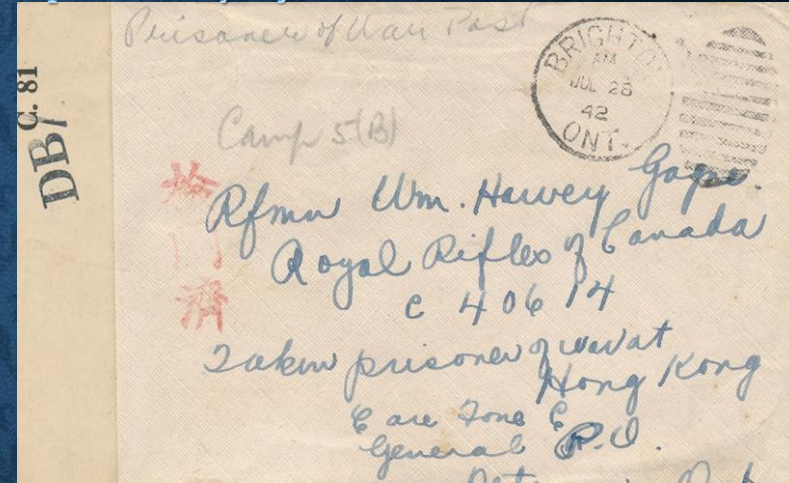 Prisoner of War Post
BRIGHTO
AM
JUL 28
42
ONT.
C. 81
DB/
Camp 5(B)
Rfmn Wm. Harvey
Royal Rifles of Canada
C 40614
Taken prisoner of war at
Hong Kong
General P.O.
濟